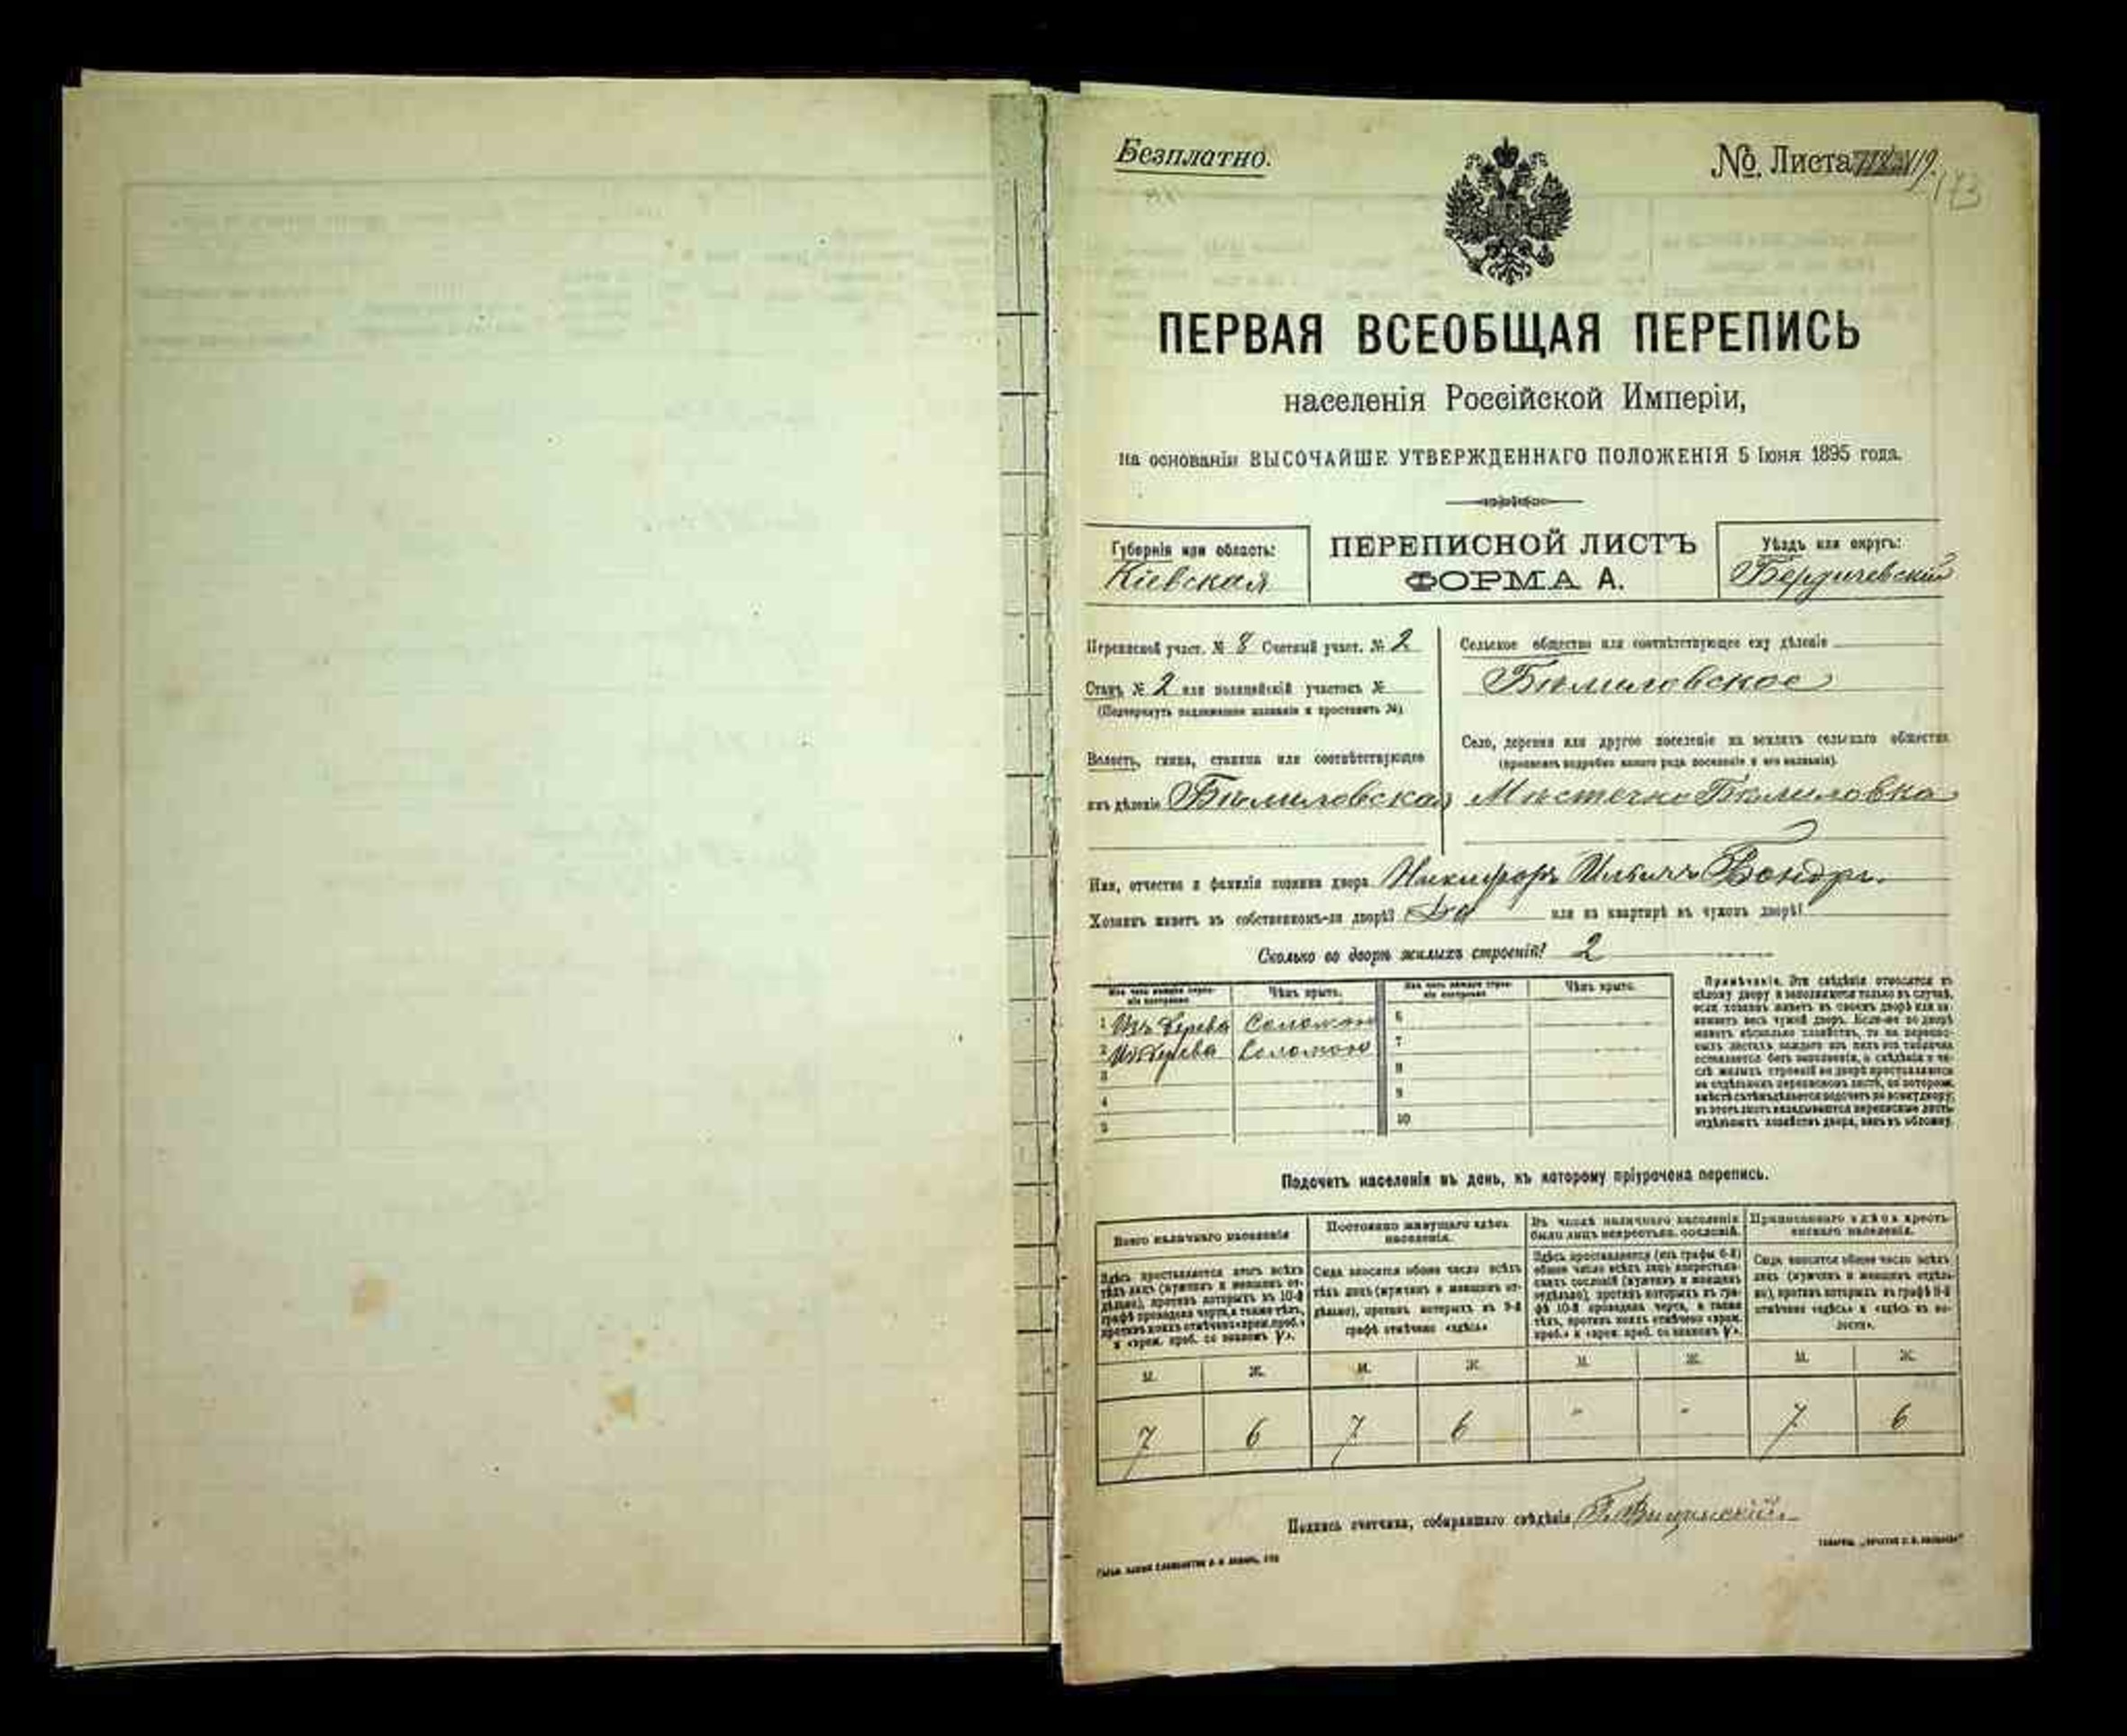 Безплатно.
№ Листа 119.
173
ПЕРВАЯ ВСЕОБЩАЯ ПЕРЕПИСЬ
населенія Россійской Имперіи,
на основаніи ВЫСОЧАЙШЕ УТВЕРЖДЕННАГО ПОЛОЖЕНІЯ 5 Іюня 1895 года.
Губернія или область:
Кіевская
ПЕРЕПИСНОЙ ЛИСТЪ
ФОРМА А.
Уѣздъ или округъ:
Бердичевскій
Переписной участ. № 8 Счетный участ. № 2
Станъ № 2 или полицейскій участокъ №
(Подчеркнуть надлежащее названіе и проставить №)
Волость, гмина, станица или соотвѣтствующее
имъ дѣленіе Бѣлиловская
Сельское общество или соотвѣтствующее ему дѣленіе
Бѣлиловское
Село, деревня или другое поселеніе на земляхъ сельскаго общества
(прописать подробно какого рода поселеніе и его названіе).
Мѣстечко Бѣлиловка
Имя, отчество и фамилія хозяина двора Никифоръ Ильичъ Бондръ.
Хозяинъ живетъ въ собственномъ-ли дворѣ? Да или на квартирѣ въ чужомъ дворѣ?
Сколько во дворѣ жилыхъ строеній? 2
Изъ чего каждое строеніе построено Чѣмъ крыто. Изъ чего каждое строеніе построено Чѣмъ крыто.
1 Изъ дерева Соломою 6
2 Изъ дерева Соломою 7
3 8
4 9
5 10
Примѣчаніе. Эти свѣдѣнія относятся къ
цѣлому двору и заполняются только въ случаѣ,
если хозяинъ живетъ въ своемъ дворѣ или за-
нимаетъ весь чужой дворъ. Если-же во дворѣ
живетъ нѣсколько хозяйствъ, то на перепис-
ныхъ листахъ каждаго изъ нихъ эта табличка
оставляется безъ заполненія, а свѣдѣнія о чи-
слѣ жилыхъ строеній во дворѣ проставляются
на отдѣльномъ переписномъ листѣ, на которомъ
вмѣстѣ съ тѣмъ дѣлается подсчетъ по всему двору;
въ этотъ листъ вкладываются переписные листы
отдѣльныхъ хозяйствъ двора, какъ въ обложку.
Подсчетъ населенія въ день, къ которому пріурочена перепись.
Всего наличнаго населенія
Здѣсь проставляется итогъ всѣхъ
тѣхъ лицъ (мужчинъ и женщинъ от-
дѣльно), противъ которыхъ въ 10-й
графѣ проведена черта, а также тѣхъ,
противъ коихъ отмѣчено «врем. преб.»
и «врем. преб. со знакомъ V».
Постоянно живущаго здѣсь
населенія.
Сюда вносится общее число всѣхъ
тѣхъ лицъ (мужчинъ и женщинъ от-
дѣльно), противъ которыхъ въ 9-й
графѣ отмѣчено «здѣсь»
Въ числѣ наличнаго населенія
было лицъ некрестьян. сословій.
Здѣсь проставляется (изъ графы 6-й)
общее число всѣхъ лицъ некрестьян-
скихъ сословій (мужчинъ и женщинъ
отдѣльно), противъ которыхъ въ гра-
фѣ 10-й проведена черта, а также
тѣхъ, противъ коихъ отмѣчено «врем.
преб.» и «врем. преб. со знакомъ V».
Приписаннаго здѣсь кресть-
янскаго населенія.
Сюда вносится общее число всѣхъ
лицъ (мужчинъ и женщинъ отдѣль-
но), противъ которыхъ въ графѣ 8-й
отмѣчено «здѣсь» и «здѣсь въ во-
лости».
М. Ж. М. Ж. М. Ж. М. Ж.
7 6 7 6 " " 7 6
Подпись счетчика, собиравшаго свѣдѣнія